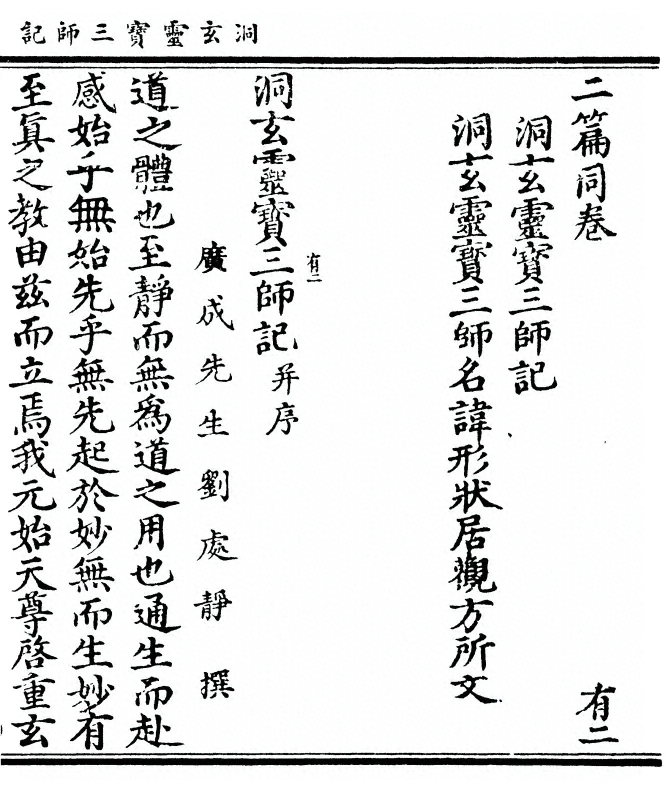 洞玄靈寶三師記
二篇同卷 有二
洞玄靈寶三師記
洞玄靈寶三師名諱形狀居觀方所文
洞玄靈寶三師記并序 有二
廣成先生劉處靜 撰
道之體也至靜而無為道之用也通生而赴
感始乎無始先乎無先起於妙無而生妙有
至真之教由茲而立焉我元始天尊啓重玄